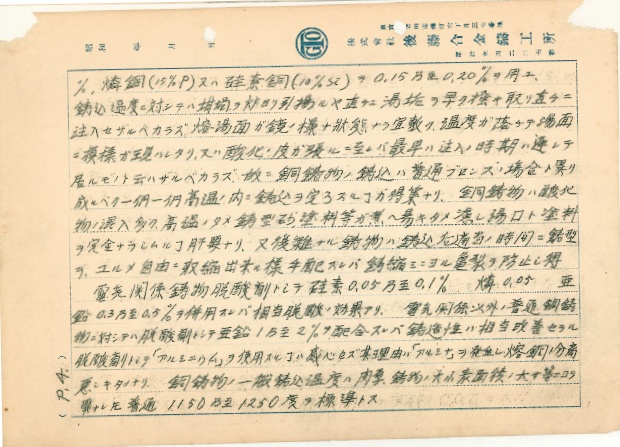 昭和 年 月 日
GTO
株式会社 後藤合金鋳工所
%、燐銅(15%P)又ハ硅素銅(10%Si)ヲ0.15乃至0.20%ヲ用エ、
鋳込温度ニ対シテハ坩堝ヲ炉ヨリ引揚ルヤ直チニ湯垢ヲ早ク掻キ取リ直チニ
注入セザルベカラズ 熔湯面ガ鏡ノ様ナ状態ナラ宜敷ク、温度ガ落チテ湯面
ニ模様ガ現ハレタリ、又ハ酸化ノ皮ガ張ルニ至レバ最早ハ注入ノ時期ハ遅レテ
居ルモノト云ハザルベカラズ 故ニ銅鋳物ノ鋳込ハ普通ブロンズノ場合ト異リ
成ルベク一個一個高温ノ内ニ鋳込ヲ完了スルヿガ得策ナリ、 銅鋳物ハ酸化
物ノ混入多ク、高温ノタメ鋳型砂塗料等ガ煮ヘ易キタメ 湯口ト塗料
ヲ完全ナラシムルヿ肝要ナリ、又複雑ナル鋳物ハ鋳込后適当ノ時間ニ鋳型
ヲ、ユルメ自由ニ収縮出来ル様手配スレバ鋳縮ミニヨル亀裂ヲ防止シ得
電気関係鋳物脱酸剤トシテ 硅素0.05乃至0.1% 燐0.05 亜
鉛0.3乃至0.5%ヲ併用スレバ相当脱酸ノ効果アリ、 電気関係以外ノ普通銅鋳
物ニ対シテハ脱酸剤トシテ亜鉛1乃至2%ヲ配合スレバ鋳造性ハ相当改善セラル
脱酸剤トシテ「アルミニウム」ヲ使用スルヿハ感心セズ 其理由ハ「アルミナ」ヲ発生シ熔銅ノ分離
悪シキタメナリ、 銅鋳物ノ一般鋳込温度ハ肉厚、鋳物ノ 表面積ノ大サ等ニヨリ
異ナレ𪜈普通 1150乃至1250度ヲ標準トス
(P.4.)